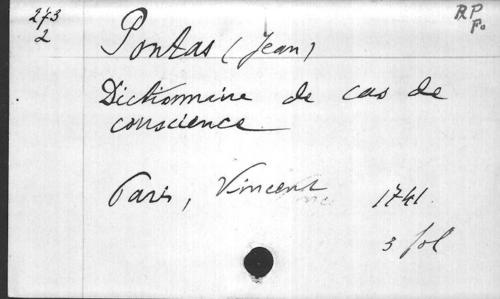 273
2
R P
Fo
Pontas (Jean)
Dictionnaire de cas de
conscience
Paris, Vincent
1741.
3 fol